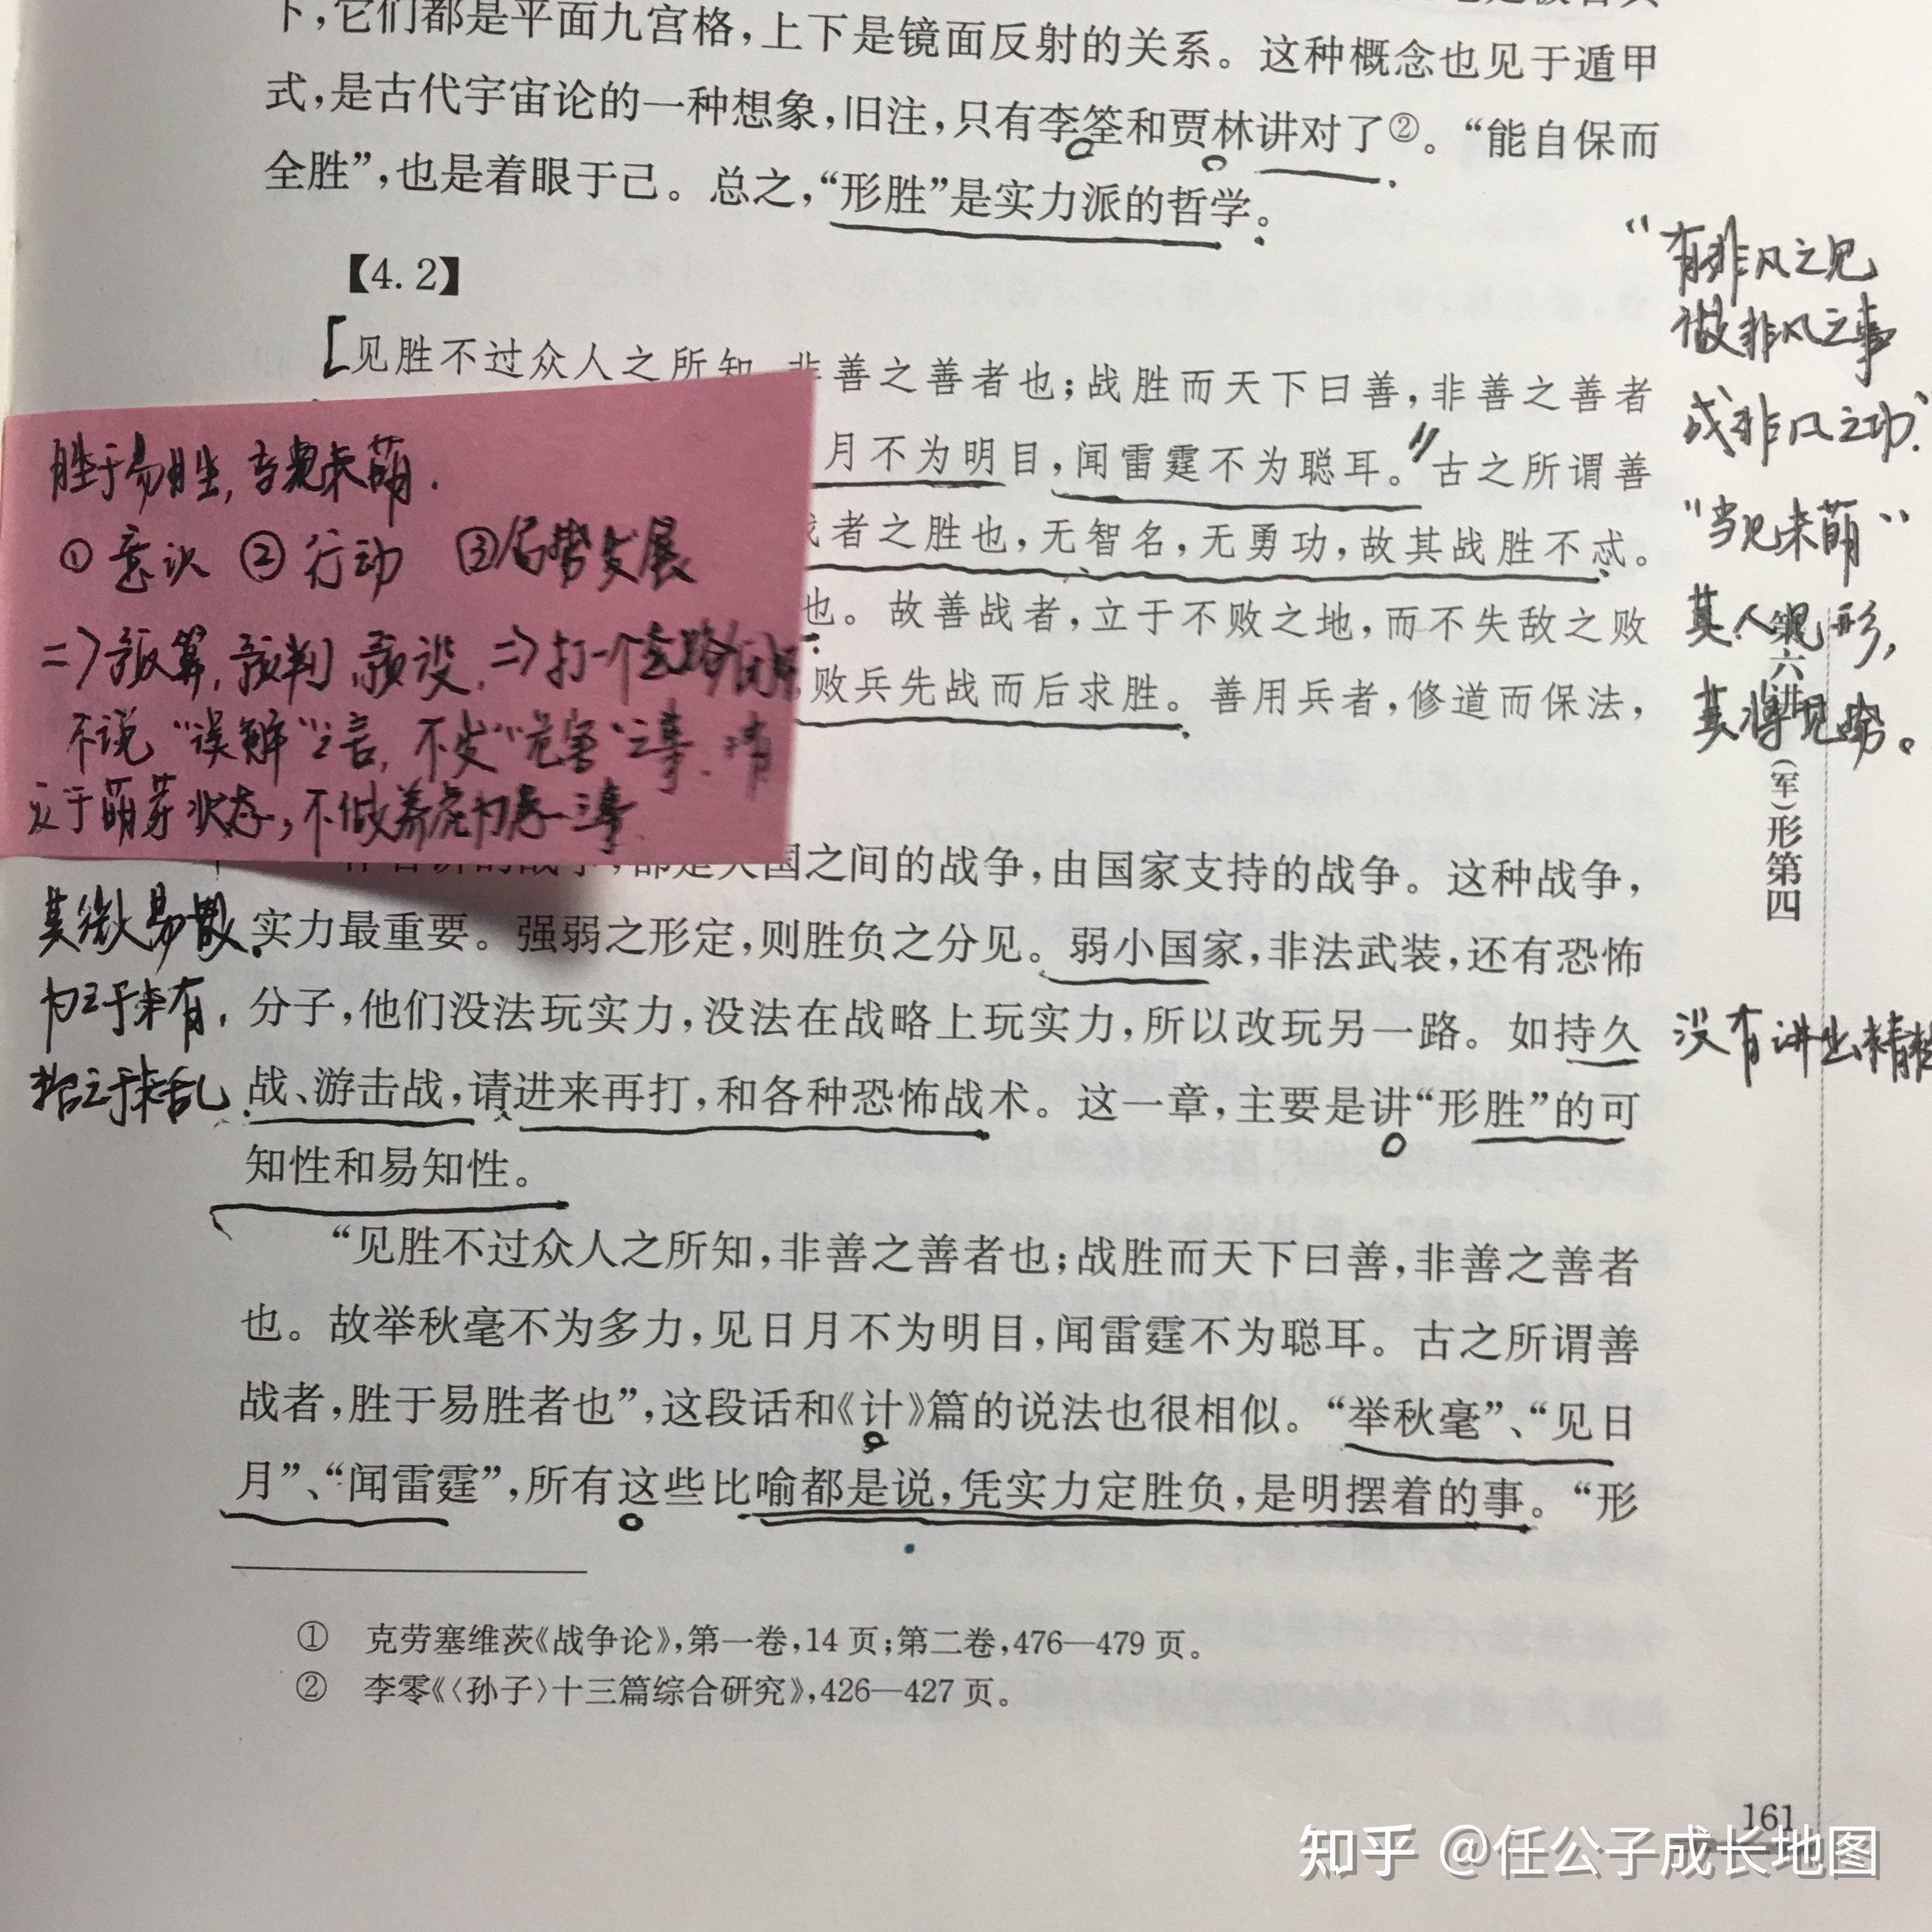 下，它们都是平面九宫格，上下是镜面反射的关系。这种概念也见于遁甲
式，是古代宇宙论的一种想象，旧注，只有李筌和贾林讲对了②。“能自保而
全胜”，也是着眼于己。总之，“形胜”是实力派的哲学。
【4.2】
见胜不过众人之所知，非善之善者也；战胜而天下曰善，非善之善者
月不为明目，闻雷霆不为聪耳。古之所谓善
战者之胜也，无智名，无勇功，故其战胜不忒。
也。故善战者，立于不败之地，而不失敌之败
败兵先战而后求胜。善用兵者，修道而保法，
都是大国之间的战争，由国家支持的战争。这种战争，
实力最重要。强弱之形定，则胜负之分见。弱小国家，非法武装，还有恐怖
分子，他们没法玩实力，没法在战略上玩实力，所以改玩另一路。如持久
战、游击战，请进来再打，和各种恐怖战术。这一章，主要是讲“形胜”的可
知性和易知性。
“见胜不过众人之所知，非善之善者也；战胜而天下曰善，非善之善者
也。故举秋毫不为多力，见日月不为明目，闻雷霆不为聪耳。古之所谓善
战者，胜于易胜者也”，这段话和《计》篇的说法也很相似。“举秋毫”、“见日
月”、“闻雷霆”，所有这些比喻都是说，凭实力定胜负，是明摆着的事。“形
① 克劳塞维茨《战争论》，第一卷，14 页；第二卷，476—479 页。
② 李零《〈孙子〉十三篇综合研究》，426—427 页。
胜于易胜，当见未萌．
①意识 ②行动 ③局势发展
=>预算，预判 预设，=>打一个套路
不说“误解”之言，不发“危害”之事、
立于萌芽状态，不做养虎为患之事
其微易散．
为之于未有，
治之于未乱
“有非凡之见
做非凡之事
成非凡之功．
“当见未萌”
没有讲出精
第六讲
（军）形第四
161
知乎 @任公子成长地图